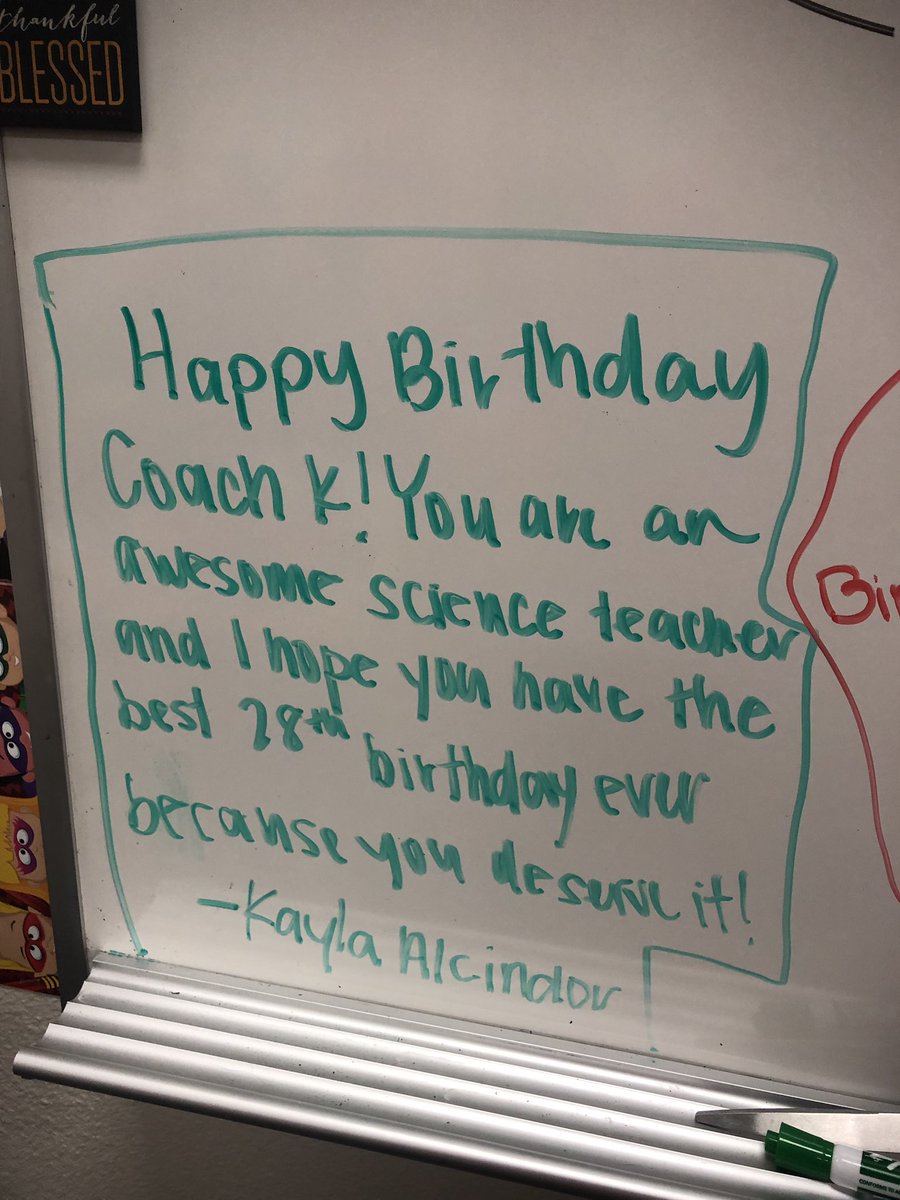 thankful
BLESSED
Happy Birthday
Coach K! You are an
awesome science teacher
and I hope you have the
best 28th birthday ever
because you deserve it!
-Kayla Alcindor
Bir
CONFORMS TO A